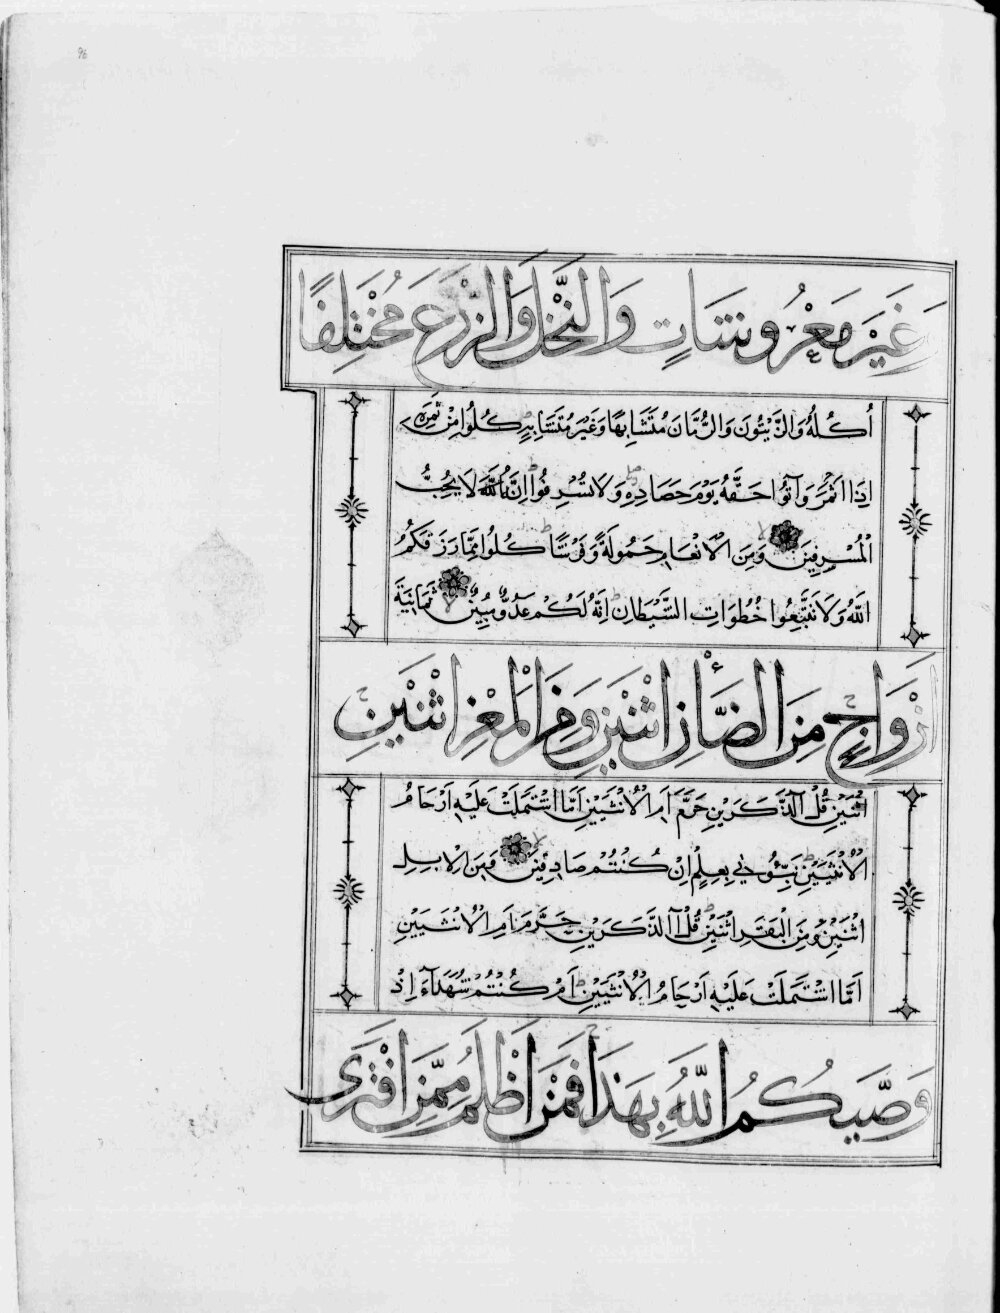 96
وَغَيْرَ مَعْرُوشَاتٍ وَالنَّخْلَ وَالزَّرْعَ مُخْتَلِفًا
أُكُلُهُ وَالزَّيْتُونَ وَالرُّمَّانَ مُتَشَابِهًا وَغَيْرَ مُتَشَابِهٍ كُلُوا مِنْ ثَمَرِهِ
إِذَا أَثْمَرَ وَآتُوا حَقَّهُ يَوْمَ حَصَادِهِ وَلَا تُسْرِفُوا إِنَّهُ لَا يُحِبُّ
الْمُسْرِفِينَ وَمِنَ الْأَنْعَامِ حَمُولَةً وَفَرْشًا كُلُوا مِمَّا رَزَقَكُمُ
اللَّهُ وَلَا تَتَّبِعُوا خُطُوَاتِ الشَّيْطَانِ إِنَّهُ لَكُمْ عَدُوٌّ مُبِينٌ ثَمَانِيَةَ
أَزْوَاجٍ مِنَ الضَّأْنِ اثْنَيْنِ وَمِنَ الْمَعْزِ اثْنَيْنِ
اثْنَيْنِ قُلْ آلذَّكَرَيْنِ حَرَّمَ أَمِ الْأُنْثَيَيْنِ أَمَّا اشْتَمَلَتْ عَلَيْهِ أَرْحَامُ
الْأُنْثَيَيْنِ نَبِّئُونِي بِعِلْمٍ إِنْ كُنْتُمْ صَادِقِينَ وَمِنَ الْإِبِلِ
اثْنَيْنِ وَمِنَ الْبَقَرِ اثْنَيْنِ قُلْ آلذَّكَرَيْنِ حَرَّمَ أَمِ الْأُنْثَيَيْنِ
أَمَّا اشْتَمَلَتْ عَلَيْهِ أَرْحَامُ الْأُنْثَيَيْنِ أَمْ كُنْتُمْ شُهَدَاءَ إِذْ
وَصَّيكُمُ اللَّهُ بِهَذَا فَمَنْ أَظْلَمُ مِمَّنِ افْتَرَى